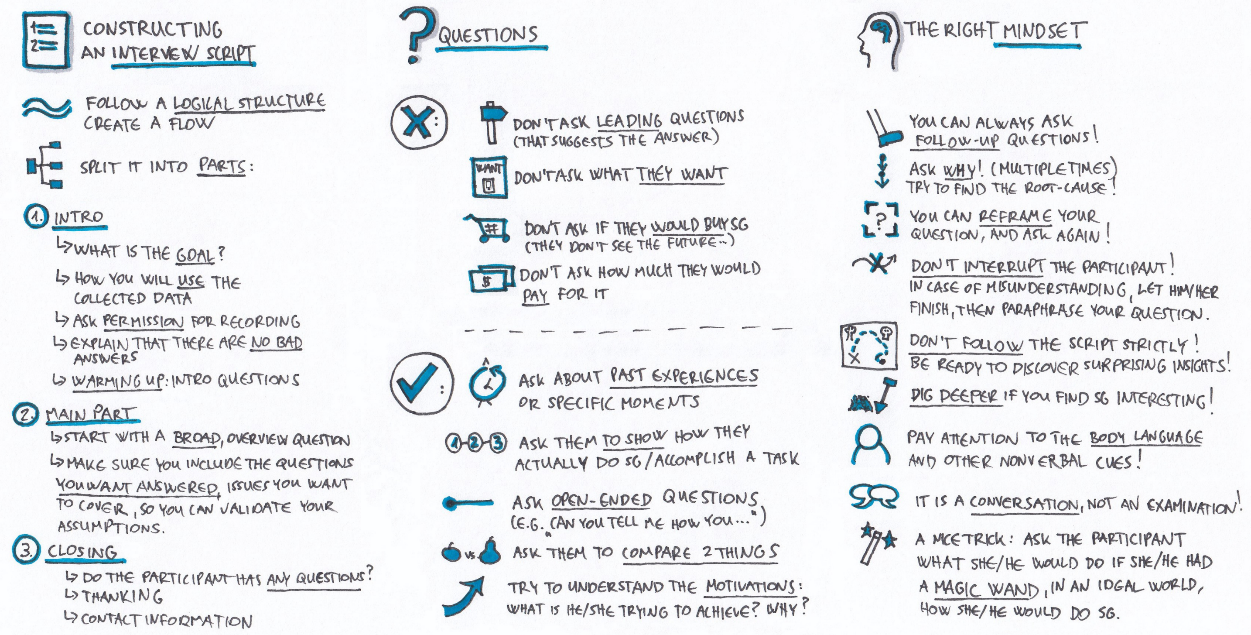 1
2
CONSTRUCTING
AN INTERVIEW SCRIPT
FOLLOW A LOGICAL STRUCTURE
CREATE A FLOW
SPLIT IT INTO PARTS:
1. INTRO
WHAT IS THE GOAL?
HOW YOU WILL USE THE
COLLECTED DATA
ASK PERMISSION FOR RECORDING
EXPLAIN THAT THERE ARE NO BAD
ANSWERS
WARMING UP: INTRO QUESTIONS
2. MAIN PART
START WITH A BROAD, OVERVIEW QUESTION
MAKE SURE YOU INCLUDE THE QUESTIONS
YOU WANT ANSWERED, ISSUES YOU WANT
TO COVER, SO YOU CAN VALIDATE YOUR
ASSUMPTIONS.
3. CLOSING
DO THE PARTICIPANT HAS ANY QUESTIONS?
THANKING
CONTACT INFORMATION
? QUESTIONS
X:
DON'T ASK LEADING QUESTIONS
(THAT SUGGESTS THE ANSWER)
WANT
DON'T ASK WHAT THEY WANT
#
DON'T ASK IF THEY WOULD BUY SG
(THEY DON'T SEE THE FUTURE..)
$
DON'T ASK HOW MUCH THEY WOULD
PAY FOR IT
:
ASK ABOUT PAST EXPERIENCES
OR SPECIFIC MOMENTS
1-2-3
ASK THEM TO SHOW HOW THEY
ACTUALLY DO SG/ACCOMPLISH A TASK
ASK OPEN-ENDED QUESTIONS
(E.G. "CAN YOU TELL ME HOW YOU...")
VS.
ASK THEM TO COMPARE 2 THINGS
TRY TO UNDERSTAND THE MOTIVATIONS:
WHAT IS HE/SHE TRYING TO ACHIEVE? WHY?
THE RIGHT MINDSET
YOU CAN ALWAYS ASK
FOLLOW-UP QUESTIONS!
ASK WHY! (MULTIPLE TIMES)
TRY TO FIND THE ROOT-CAUSE!
?
YOU CAN REFRAME YOUR
QUESTION, AND ASK AGAIN!
DON'T INTERRUPT THE PARTICIPANT!
IN CASE OF MISUNDERSTANDING, LET HIM/HER
FINISH, THEN PARAPHRASE YOUR QUESTION.
X
DON'T FOLLOW THE SCRIPT STRICTLY!
BE READY TO DISCOVER SURPRISING INSIGHTS!
DIG DEEPER IF YOU FIND SG INTERESTING!
PAY ATTENTION TO THE BODY LANGUAGE
AND OTHER NONVERBAL CUES!
IT IS A CONVERSATION, NOT AN EXAMINATION!
A NICE TRICK: ASK THE PARTICIPANT
WHAT SHE/HE WOULD DO IF SHE/HE HAD
A MAGIC WAND, IN AN IDEAL WORLD,
HOW SHE/HE WOULD DO SG.